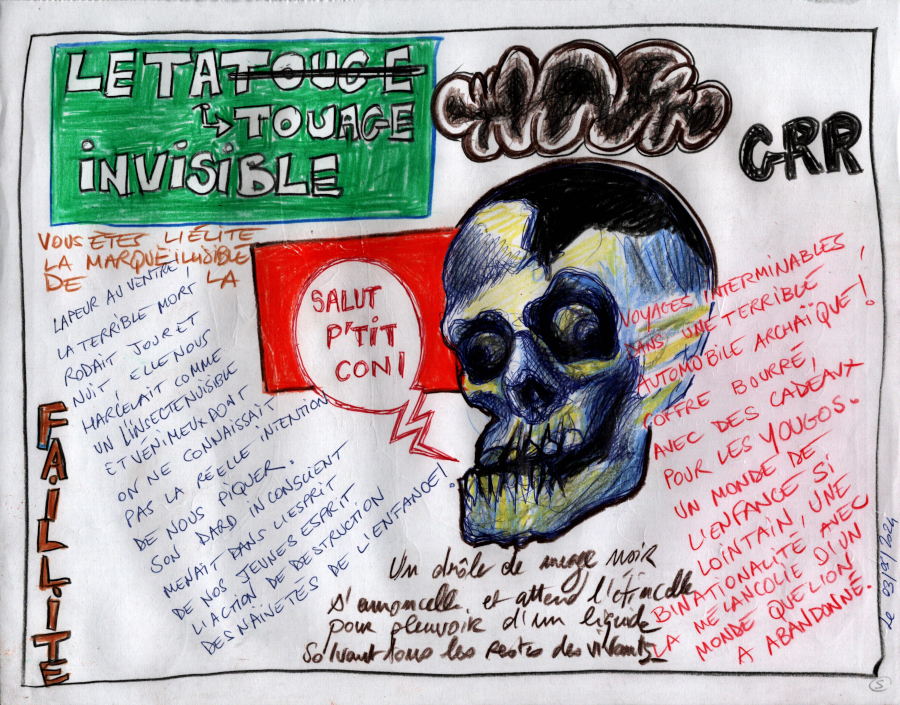 LE TATOUGE
↳ TOUAGE
INVISIBLE
GRR
VOUS ÊTES L'ÉLITE
LA MARQUE ILLISIBLE
DE LA
FAILLITE
SALUT
P'TIT
CON!
LA PEUR AU VENTRE!
LA TERRIBLE MORT
RODAIT JOUR ET
NUIT, ELLE NOUS
HARCELAIT COMME
UN L'INSECTE NUISIBLE
ET VÉNIMEUX DONT
ON NE CONNAISSAIT
PAS LA RÉELLE INTENTION
DE NOUS PIQUER.
SON DARD INCONSCIENT
MENAIT DANS L'ESPRIT
DE NOS JEUNES ESPRIT
L'ACTION DE DESTRUCTION
DES NAÏNETÉS DE L'ENFANCE!
VOYAGES INTERMINABLES
DANS UNE TERRIBLE
AUTOMOBILE ARCHAÏQUE!
COFFRE BOURRÉ,
AVEC DES CADEAUX
POUR LES YOUGOS.
UN MONDE DE
L'ENFANCE SI
LOINTAIN, UNE
BINATIONALITÉ AVEC
LA MÉLANCOLIE D'UN
MONDE QUE L'ON
A ABANDONNÉ.
Un drôle de nuage noir
s'amoncelle, et attend l'étincelle
pour pleuvoir d'un liquide
solvant tous les restes des vivants
le 03/09/2024
S